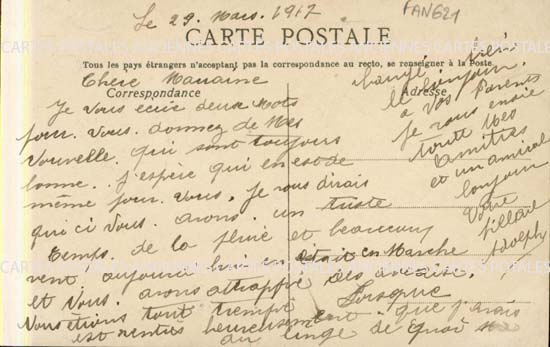 Le 29. Mars. 1917
FANG21
CARTE POSTALE
Tous les pays étrangers n'acceptant pas la correspondance au recto, se renseigner à la Poste.
Correspondance
Adresse
Chere Maraine
Je vous écris deux Mots
pour. vous. donnez de Mes
Nouvelle. qui sont toujours
bonne. j'espère qui en est de
même pour. vous. Je vous dirais
qui ci vous. avons. un triste
temps. de la pluie et beaucoup
vent aujourd'hui on était en Marche
et Vous. avons attrappé des
Nous étions tout trempé Lorsque
est rentres heureusement. que j'avais
du linge de quoi
changé
le bonjour
a vos Parents
Je vous envoie
toute mes
amitiés
et un amical
bonjour
Votre
filleul
Adolph